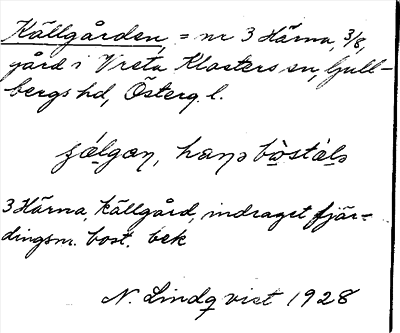 Källgården, = nr 3 Härna, 3/8,
gård i Vreta Klosters sn, Gull-
bergs hd, Österg. l.
hans
3 Härna, Källgård, indraget fjär-
dingsm. bost. bek
N. Lindqvist 1928